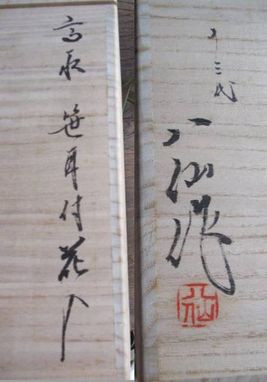 高取 笹耳付花入
十三代
八仙作